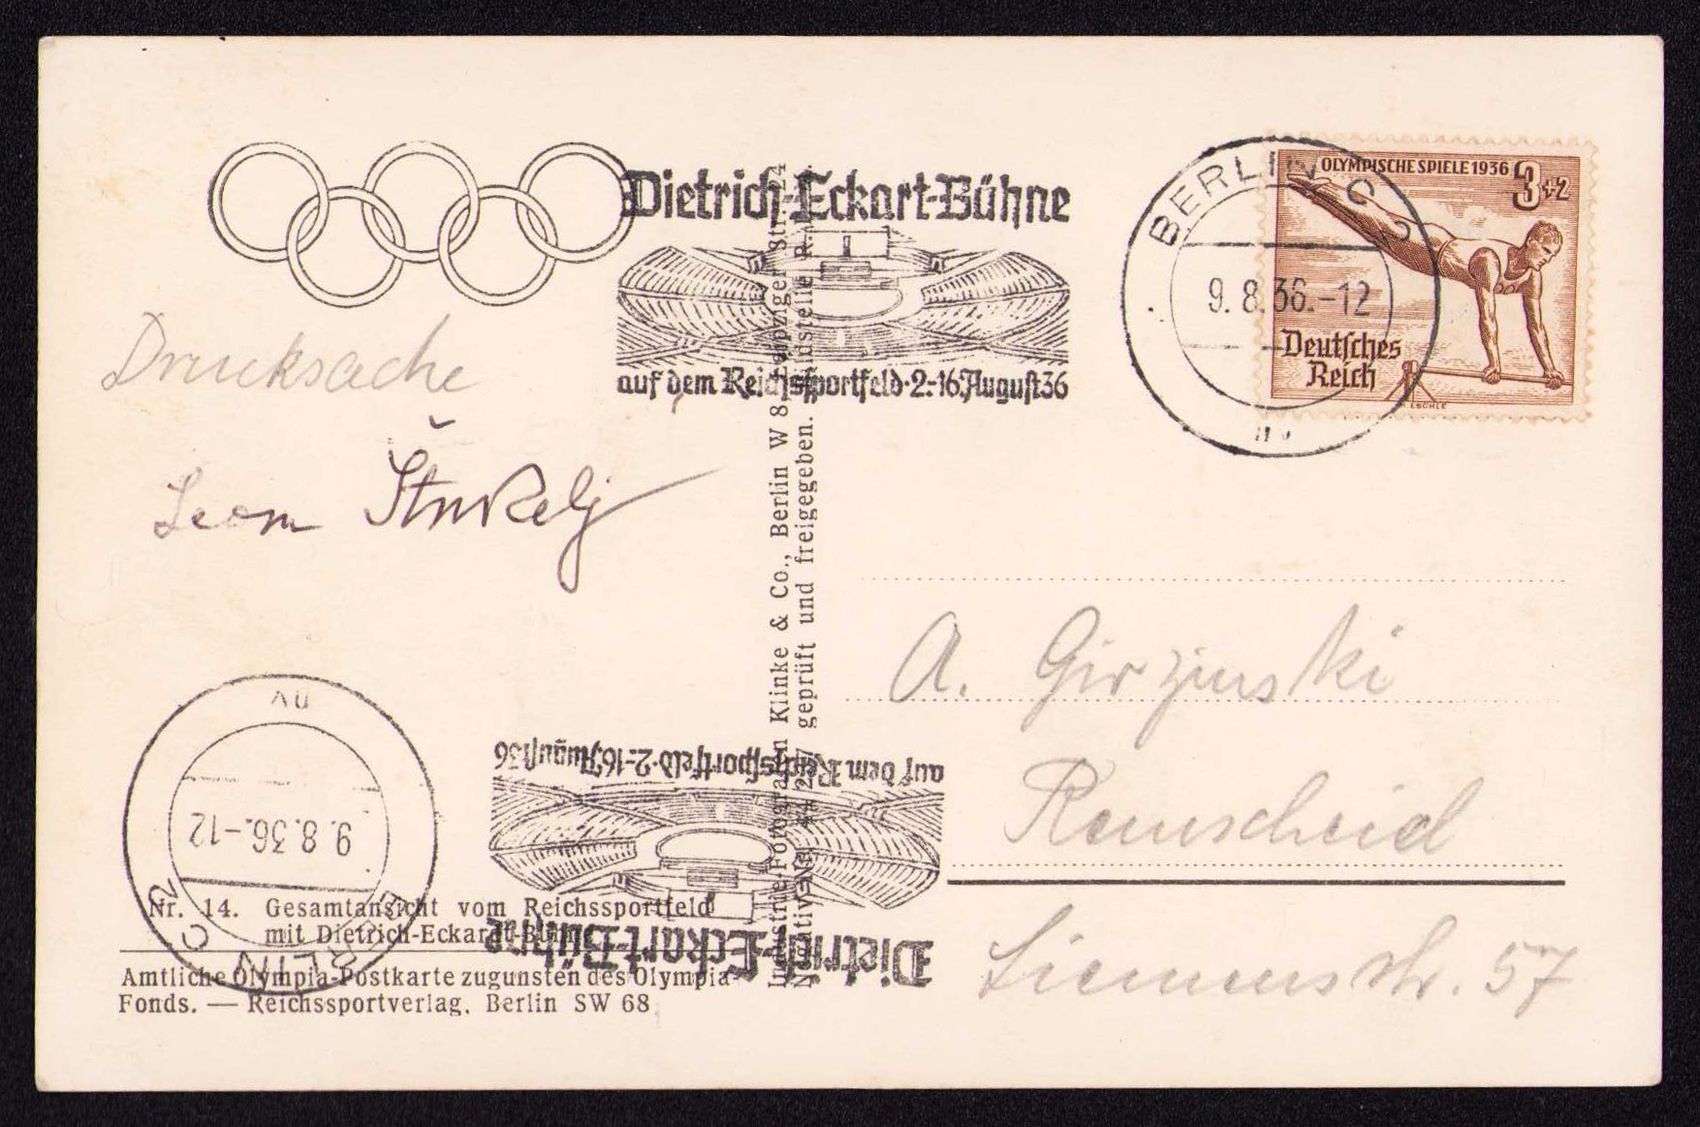 Dietrich-Eckart-Bühne
auf dem Reichssportfeld·2.-16.August 36
BERLIN C 2
9.8.36.-12
OLYMPISCHE SPIELE 1936
3+2
Deutsches
Reich
Drucksache
Leon Štukelj
Klinke & Co., Berlin W 8, Leipziger
geprüft und freigegeben.
A. Girzinski
Remscheid
Siemensstr. 57
auf dem Reichssportfeld·2.-16.August 36
Dietrich-Eckart-Bühne
9.8.36.-12
BERLIN C 2
Nr. 14. Gesamtansicht vom Reichssportfeld
mit Dietrich-Eckart-Bühne
Amtliche Olympia-Postkarte zugunsten des Olympia-
Fonds. — Reichssportverlag, Berlin SW 68